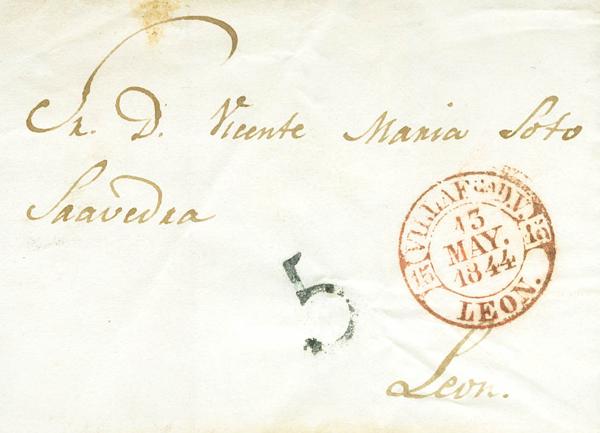 Sr. D. Vicente Maria Soto
Saavedra
15 VILLAFca DV. 15
13
MAY.
1844
LEON.
5
Leon.